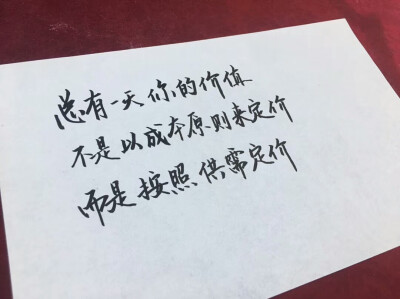 总有一天你的价值
不是以成本原则来定价
而是按照供需定价